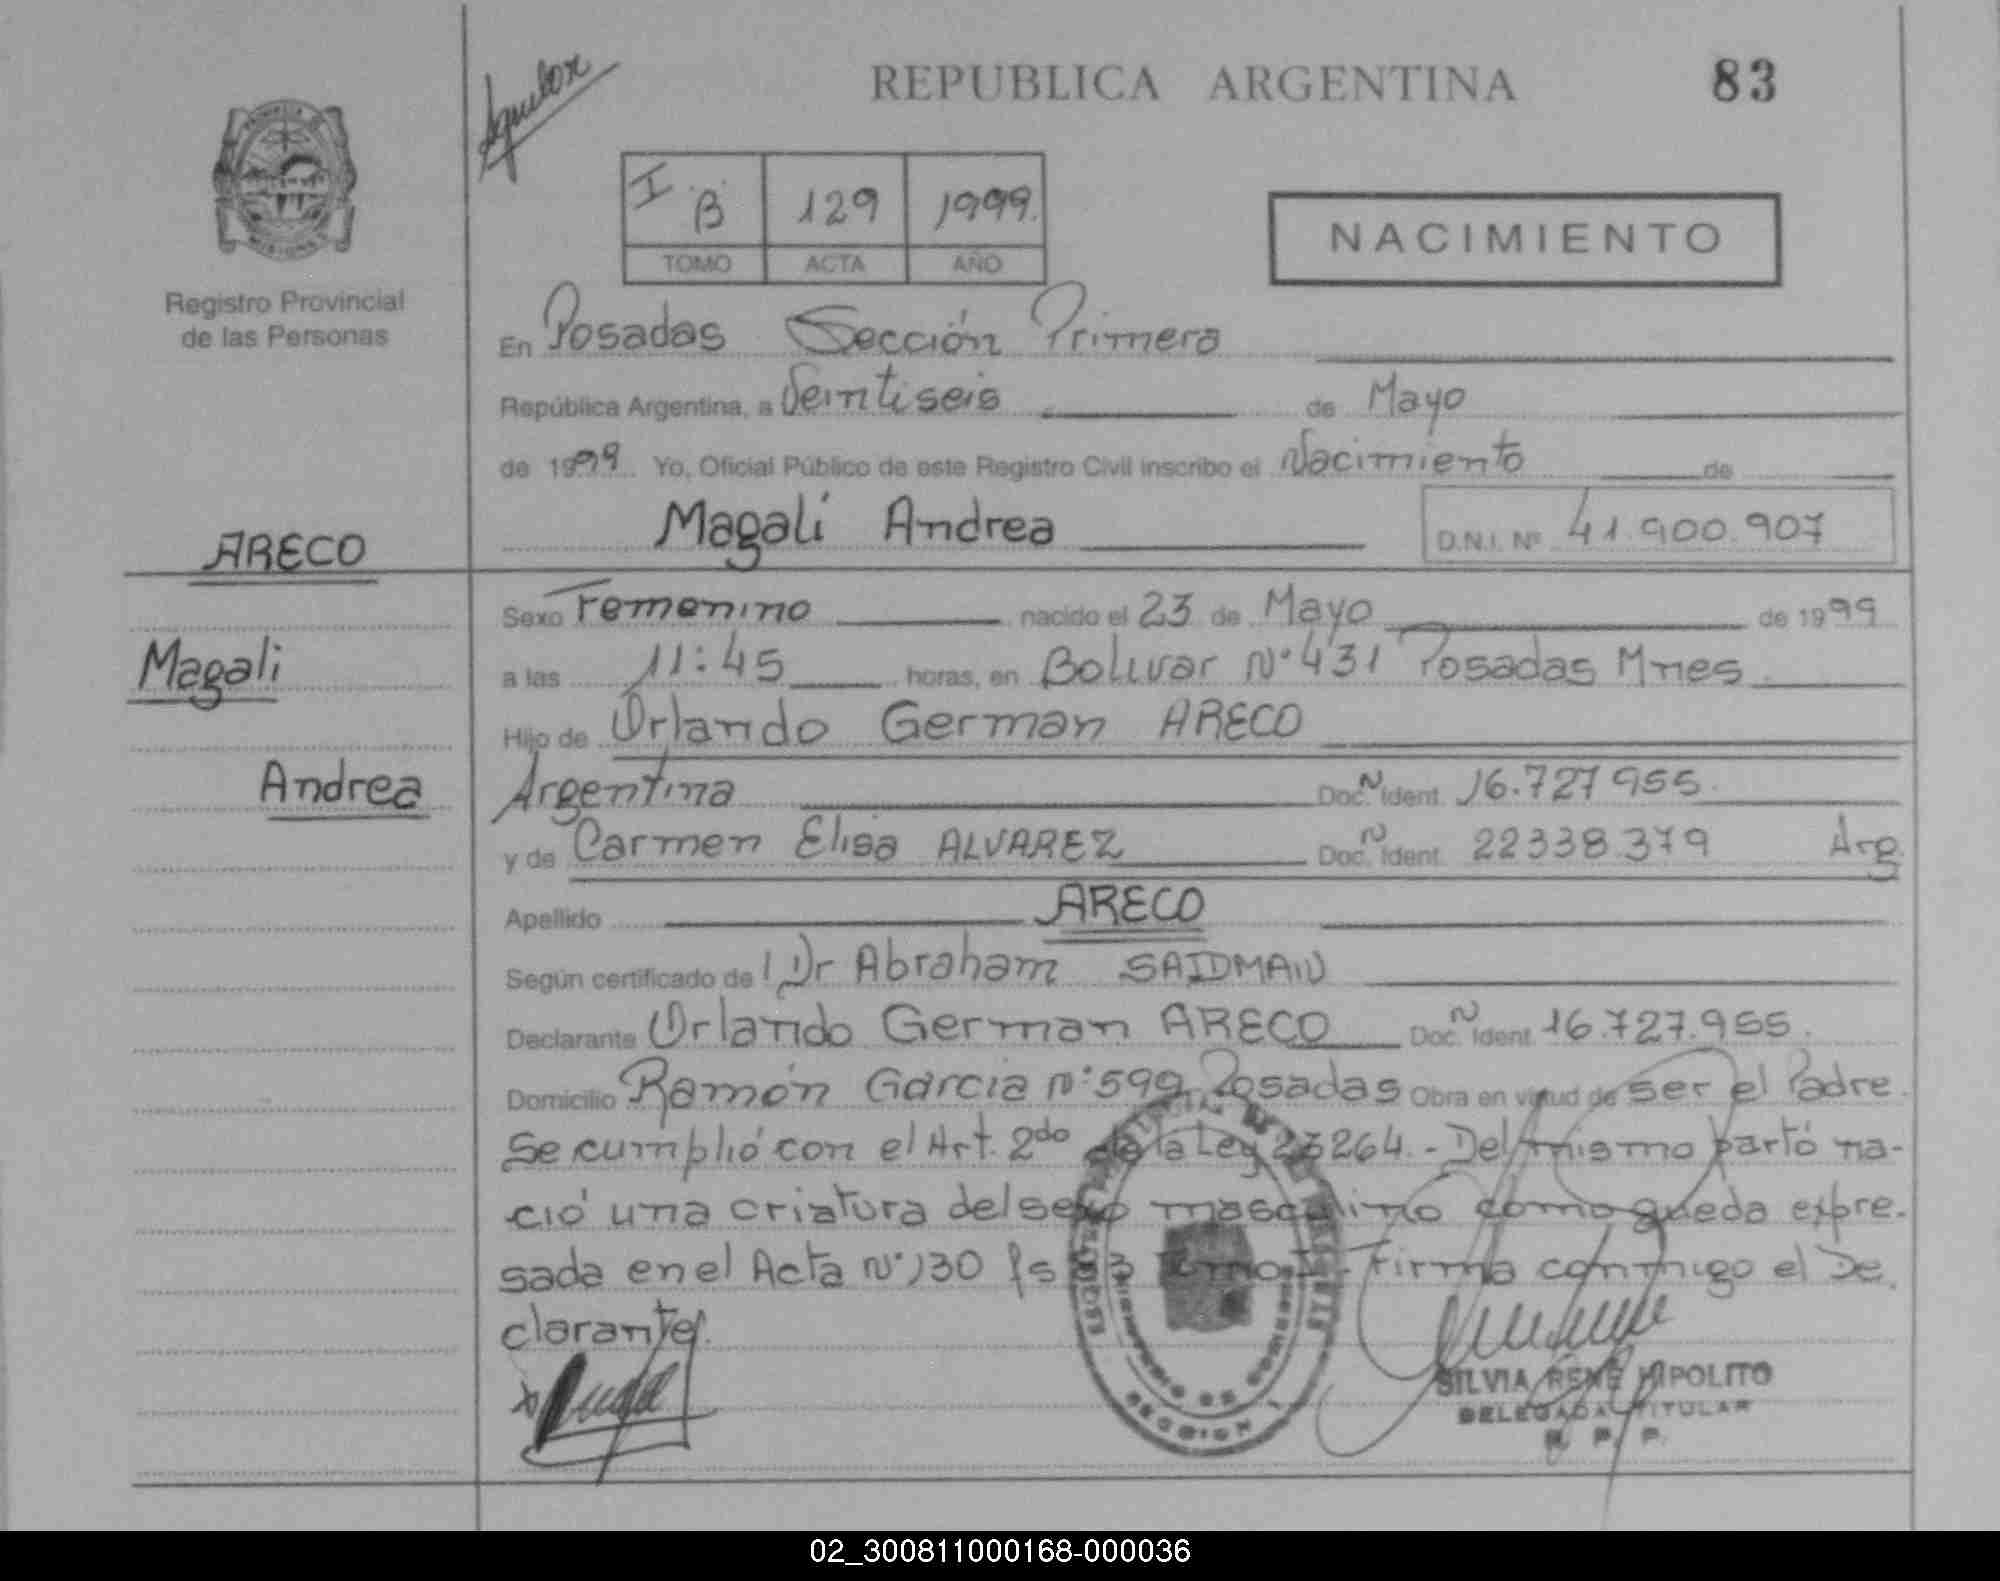 REPUBLICA ARGENTINA 83
I B 129 1999.
TOMO ACTA AÑO
NACIMIENTO
Registro Provincial
de las Personas
En Posadas Sección Primera
República Argentina, a Veintiseis de Mayo
de 1999 Yo, Oficial Público de este Registro Civil inscribo el Nacimiento de
Magali Andrea D.N.I. Nº 41.900.907
ARECO
Magali
Andrea
Sexo Femenino nacido el 23 de Mayo de 1999
a las 11:45 horas, en Bolivar Nº 431 Posadas Mnes
Hijo de Orlando German ARECO
Argentina Doc. N Ident. 16.727 955.
y de Carmen Elisa ALVAREZ Doc. N Ident. 22338.379 Arg.
Apellido ARECO
Según certificado de Dr Abraham SAIDMAN
Declarante Orlando German ARECO Doc. N Ident. 16.727.955.
Domicilio Ramón Garcia Nº 599 Posadas Obra en virtud de ser el Padre.
Se cumplió con el Art. 2do de la Ley 23264.- Del mismo partó na-
ció una criatura del sexo masculino como queda expre-
sada en el Acta Nº 130 Fs 83 Tomo I - Firma conmigo el De
clarante.
SILVIA RENE HIPOLITO
DELEGADA TITULAR
R. P. P.
02_300811000168-000036